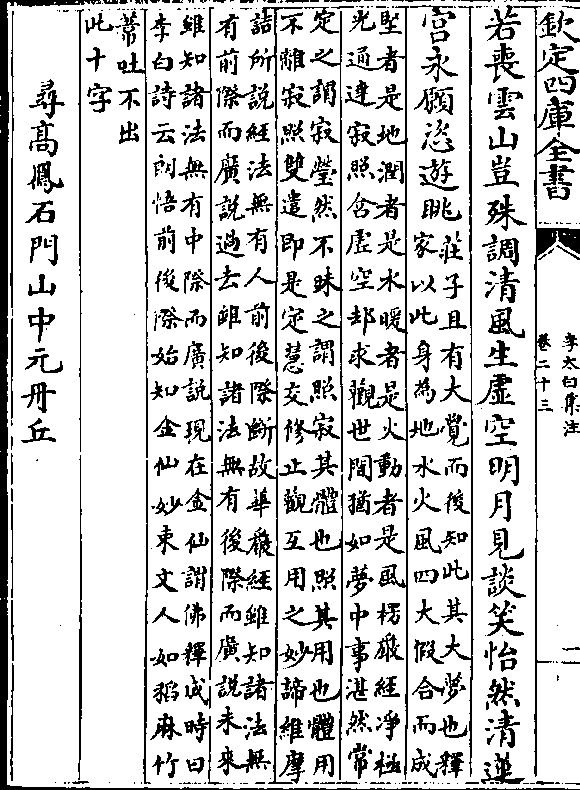 欽定四庫全書
李太白集注
卷二十三
一
若喪雲山豈殊調清風生虛空明月見談笑怡然清蓮
宮永願恣遊眺
莊子且有大覺而後知此其大夢也釋
家以此身為地水火風四大假合而成
堅者是地潤者是水暖者是火動者是風楞嚴經淨極
光通達寂照含虛空却來觀世間猶如夢中事湛然常
定之謂寂瑩然不昧之謂照寂其體也照其用也體用
不離寂照雙遣即是定慧交修止觀互用之妙諦維摩
詰所說經法無有人前後際斷故華嚴經雖知諸法無
有前際而廣說過去雖知諸法無有後際而廣說未來
雖知諸法無有中際而廣說現在金仙謂佛釋成時曰
李白詩云朗悟前後際始知金仙妙東文人如稻麻竹
葦吐不出
此十字
尋高鳳石門山中元丹丘